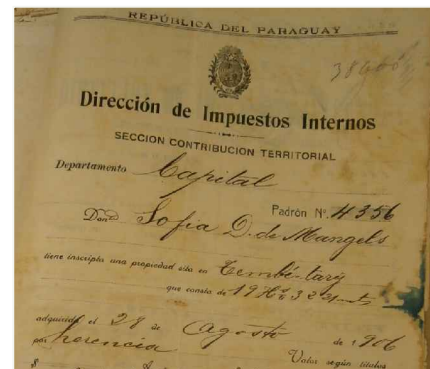 REPÚBLICA DEL PARAGUAY
Dirección de Impuestos Internos
SECCION CONTRIBUCION TERRITORIAL
Departamento Capital
Padrón Nº. 4356
Don Sofia D. de Mangels
tiene inscripta una propiedad sita en Tembé-tary
que consta de
adquirida el 28 de Agosto de 1906
por herencia
Valor según títulos